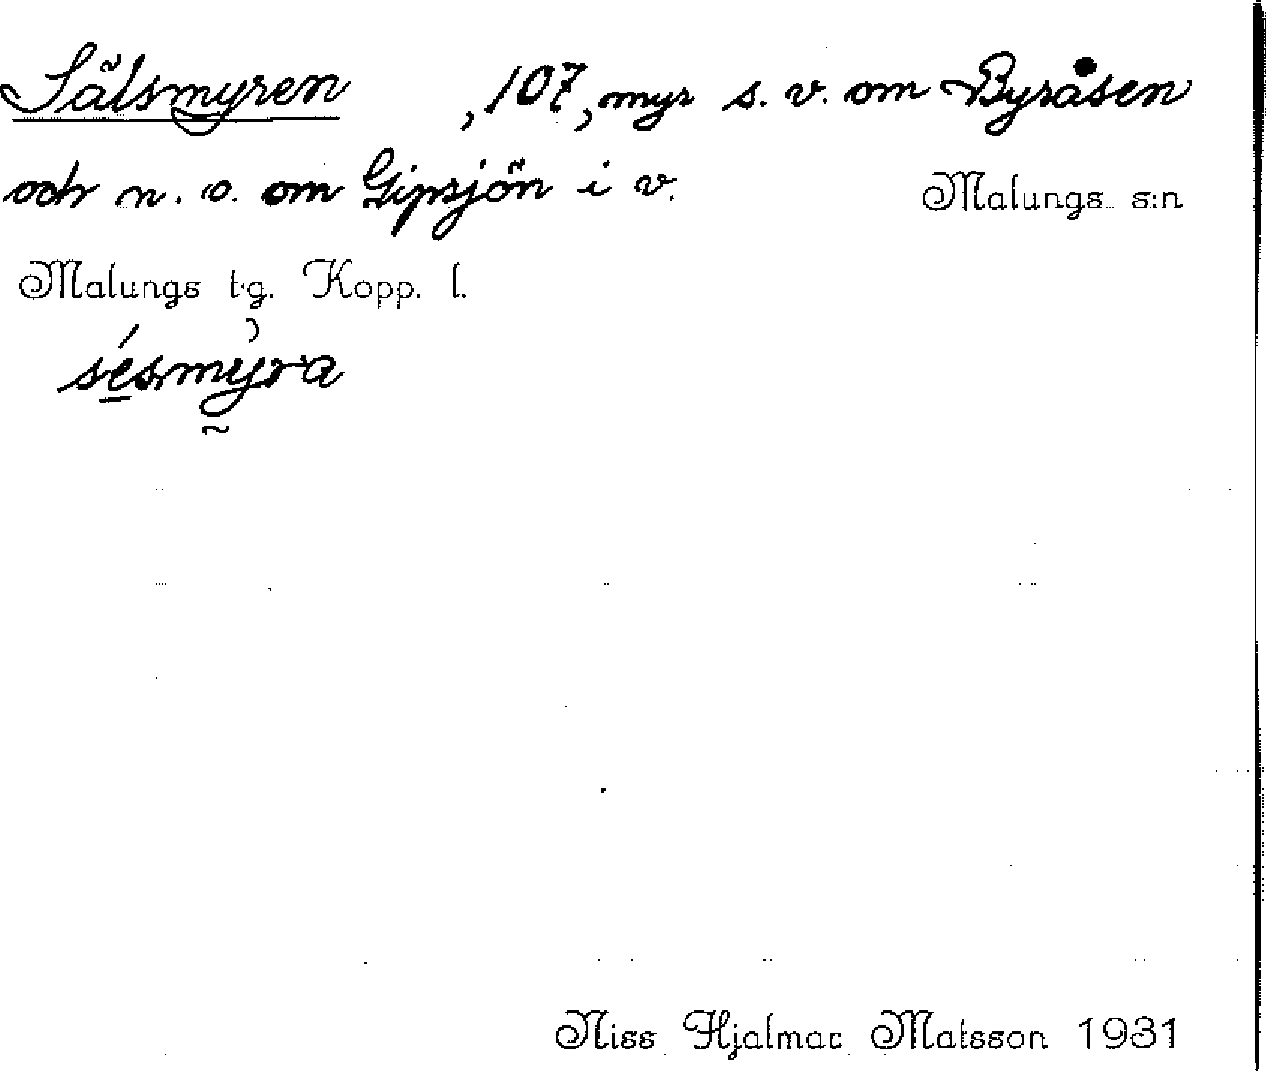 Sälsmyren , 107, myr s. v. om Byråsen
och n. o. om Gipsjön i v. Malungs s:n
Malungs tg. Kopp. l.
sésmýra
Niss Hjalmar Matsson 1931